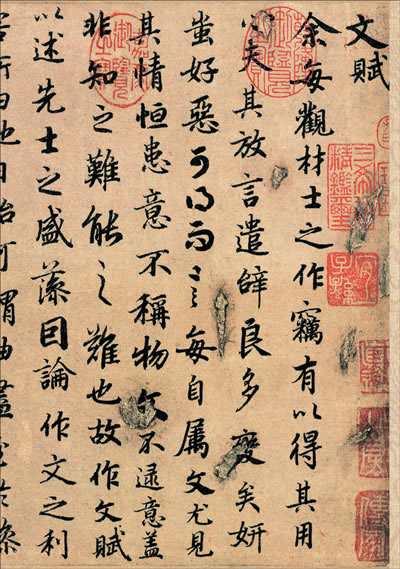 文賦
余每觀材士之作竊有以得其用
心夫其放言遣辭良多變矣妍
蚩好惡可得而言每自属文尤見
其情恒患意不稱物文不逮意蓋
非知之難能之難也故作文賦
以述先士之盛藻因論作文之利
害所由他日殆可謂曲盡